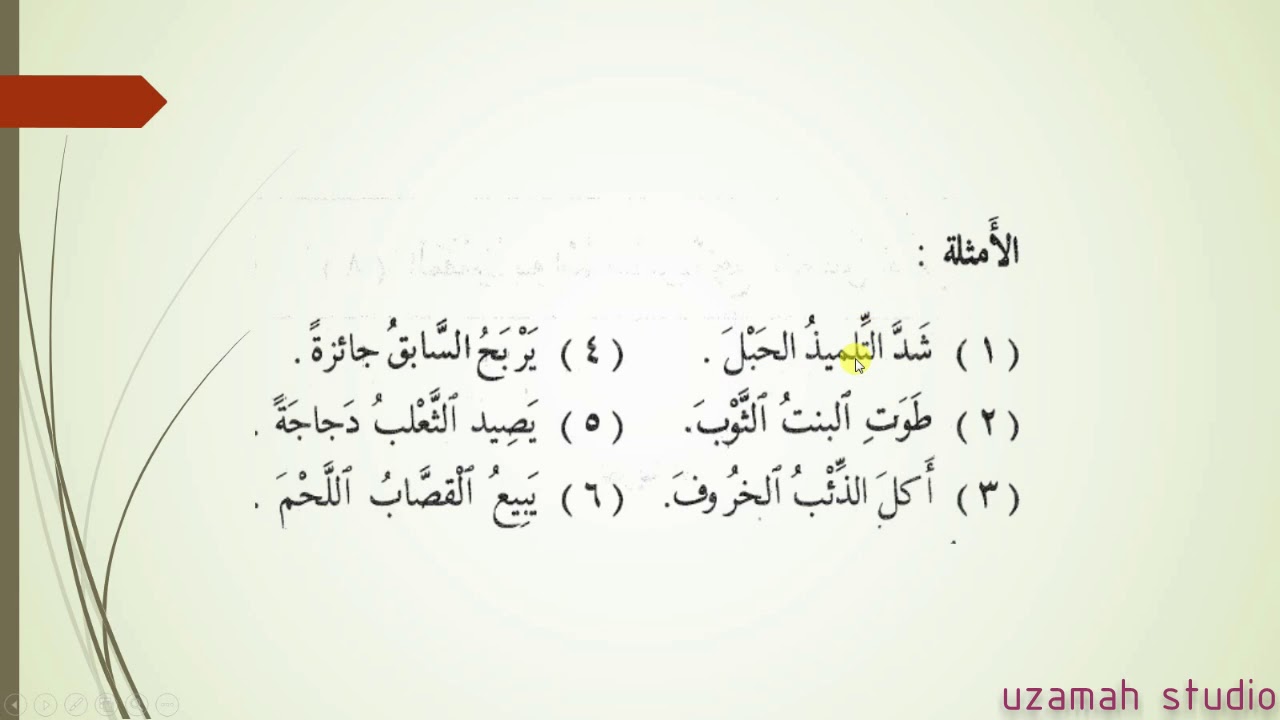 الأَمثلة :
(١) شَدَّ التِّلميذُ الحَبْلَ . (٤) يَرْبَحُ السَّابقُ جائزةً .
(٢) طَوَتِ ٱلبنتُ ٱلثَّوْبَ. (٥) يَصِيد ٱلثَّعْلبُ دَجاجَةً .
(٣) أَكلَ الذِّئْبُ ٱلخرُوفَ. (٦) يَبِيعُ ٱلْقصَّابُ ٱللَّحْمَ .
uzamah studio